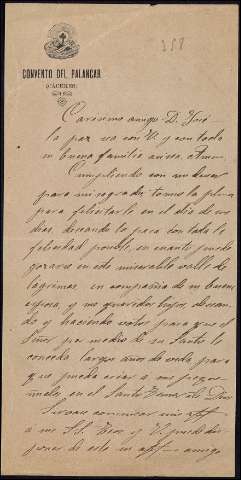 358
CONVENTO DEL PALANCAR
(CÁCERES)
Carísimo amigo D. José
la paz sea con V. y con toda
su buena familia
Cumpliendo con un deber
para mi sagrado tomo la pluma
para felicitarle en el día de sus
días, deseando lo pase con toda la
felicidad posible, en cuanto puede
gozarse en este miserable valle de
lágrimas, en compañía de su buena
esposa, y sus queridos hijos, desean
do y haciendo votos para que el
Señor por medio de su Santo le
conceda largos años de vida para
que pueda criar a sus peque
ñuelos en el Santo temor de Dios
Sírvase comunicar mis
a sus y V. puede dis
poner de este su amigo